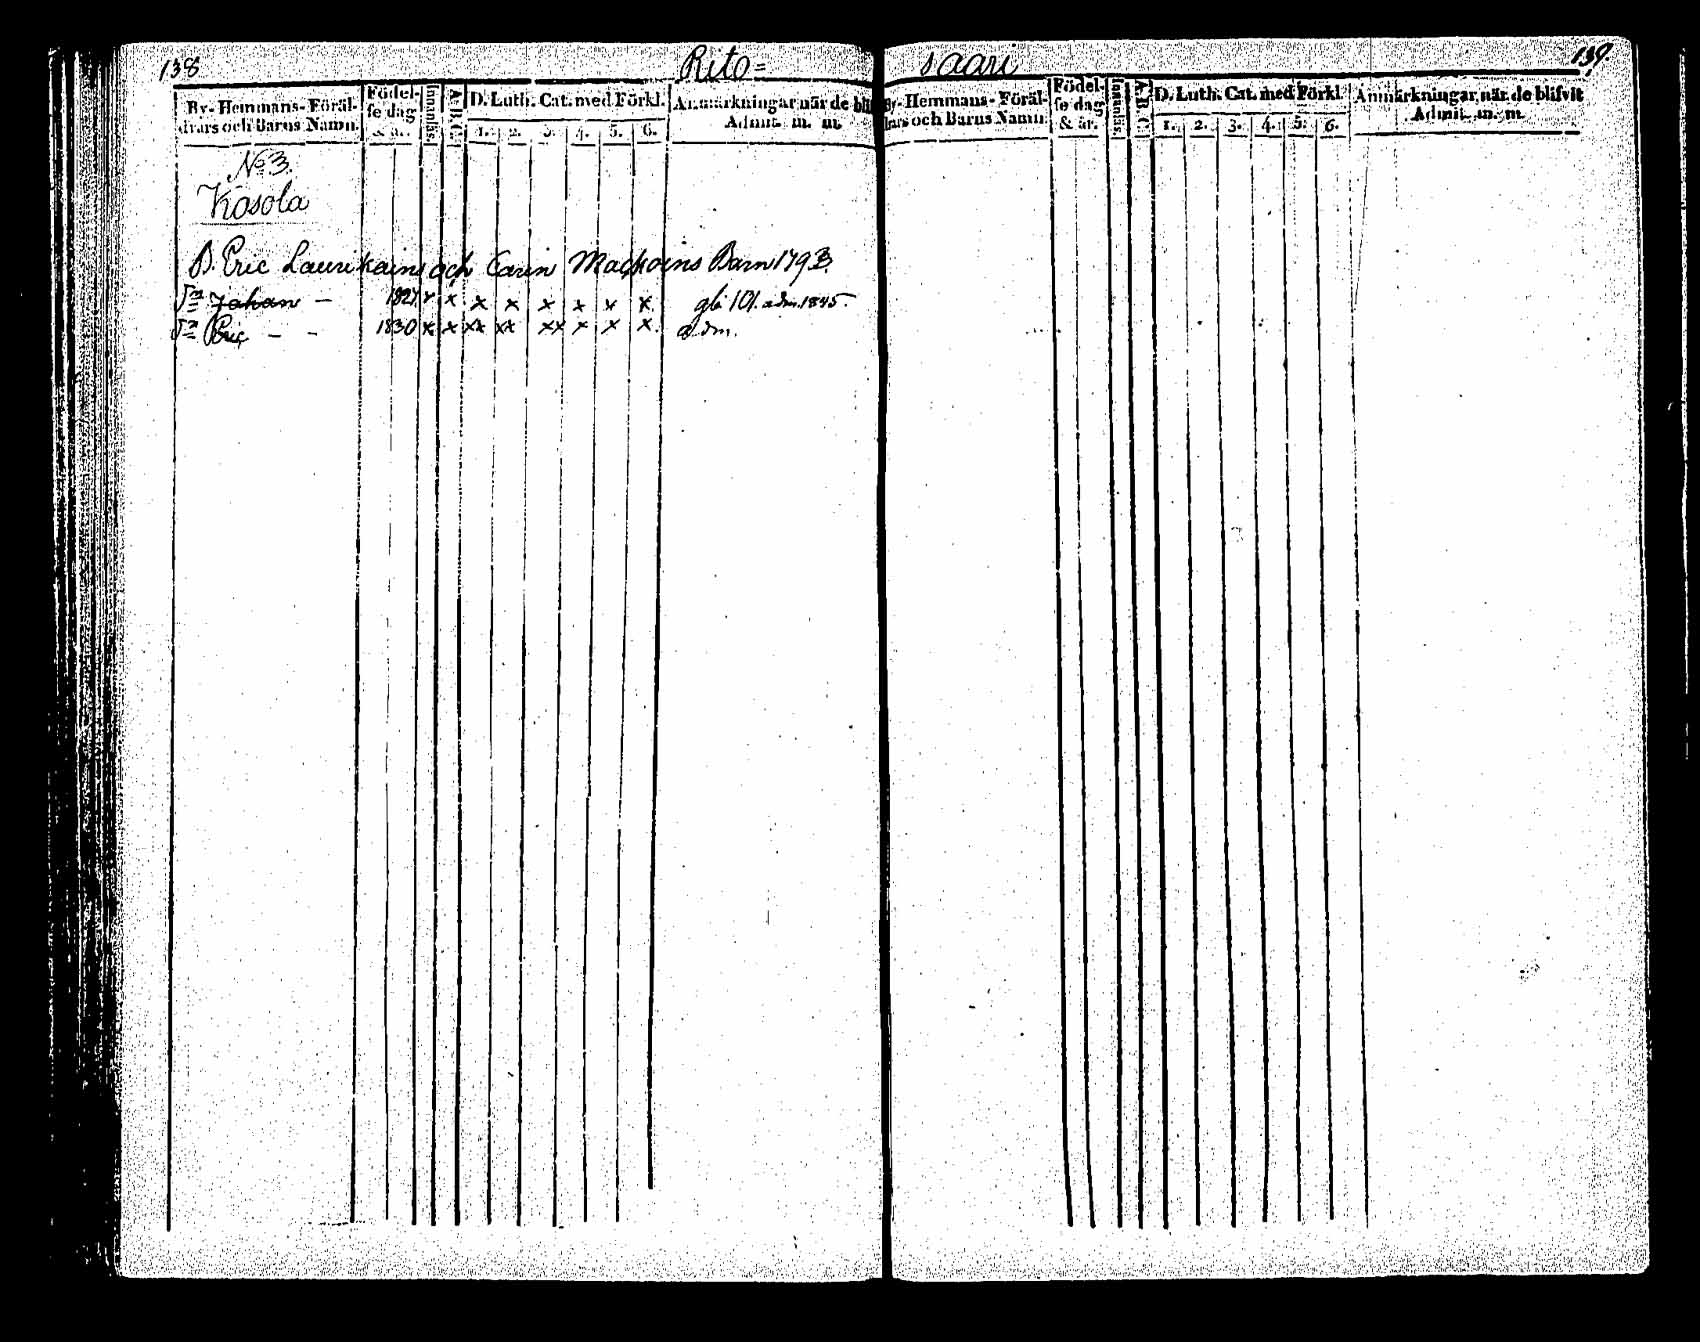 138
Rito=
By- Hemmans- Föräl-
drars och Barns Namn.
Födel-
se dag
& år.
Innanläs.
A. B. C.
D. Luth. Cat. med Förkl.
1. 2. 3. 4. 5. 6.
Anmärkningar när de blif
Admit. m. m.
No 3.
Kosola
B. Eric Laurikains och Carin Mackoins Barn 1793.
Sn Johan — 1827 x x x x x x x x glt 101. adm. 1845.
Sn Eric — - 1830 x x xx xx xx x x x adm.
saari
139.
By- Hemmans- Föräl-
drars och Barns Namn
Födel-
se dag
& år.
Innanläs.
A. B. C.
D. Luth. Cat. med Förkl.
1. 2. 3. 4. 5. 6.
Anmärkningar när de blifvit
Admit. m. m.